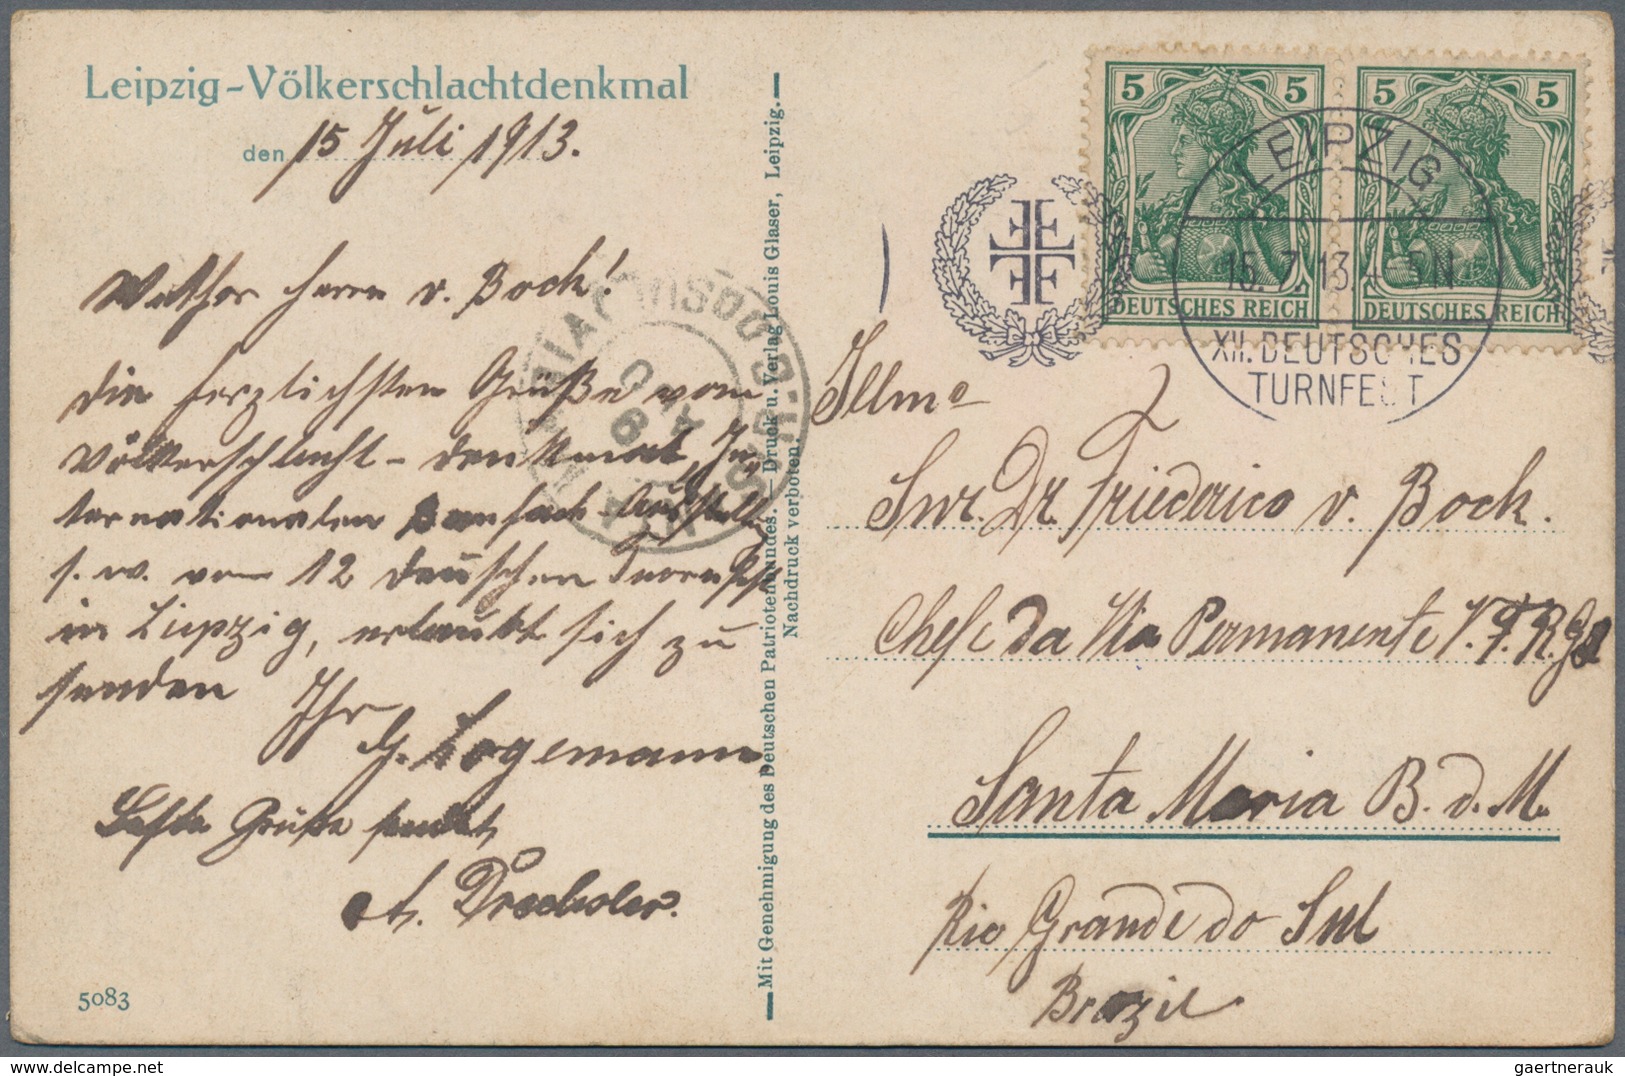 Leipzig-Völkerschlachtdenkmal
den 15 Juli 1913.
Werther Herrn v. Bock!
die herzlichsten Grüße vom
Völkerschlacht-denkmal, In-
ternationalen Baufach-Ausstellg
s. w. vom 12 deutschen Turnfest
in Leipzig, erlaubt sich zu
senden
Ihr
G. Logemann
Beste Grüße sendet,
A. Drechsler.
5083
Mit Genehmigung des Deutschen Patriotenbundes. — Druck u. Verlag Louis Glaser, Leipzig.
Nachdruck verboten.
5 5
DEUTSCHES REICH
5 5
DEUTSCHES REICH
LEIPZIG
15.7.13. 4-5N
XII. DEUTSCHES
TURNFEST
Illmo
Snr. Dr. Friederico v. Bock.
Chefe da Via Permanente V. F. R. G. S
Santa Maria B. d. M.
Rio Grande do Sul
Brazil
gaertnerauk